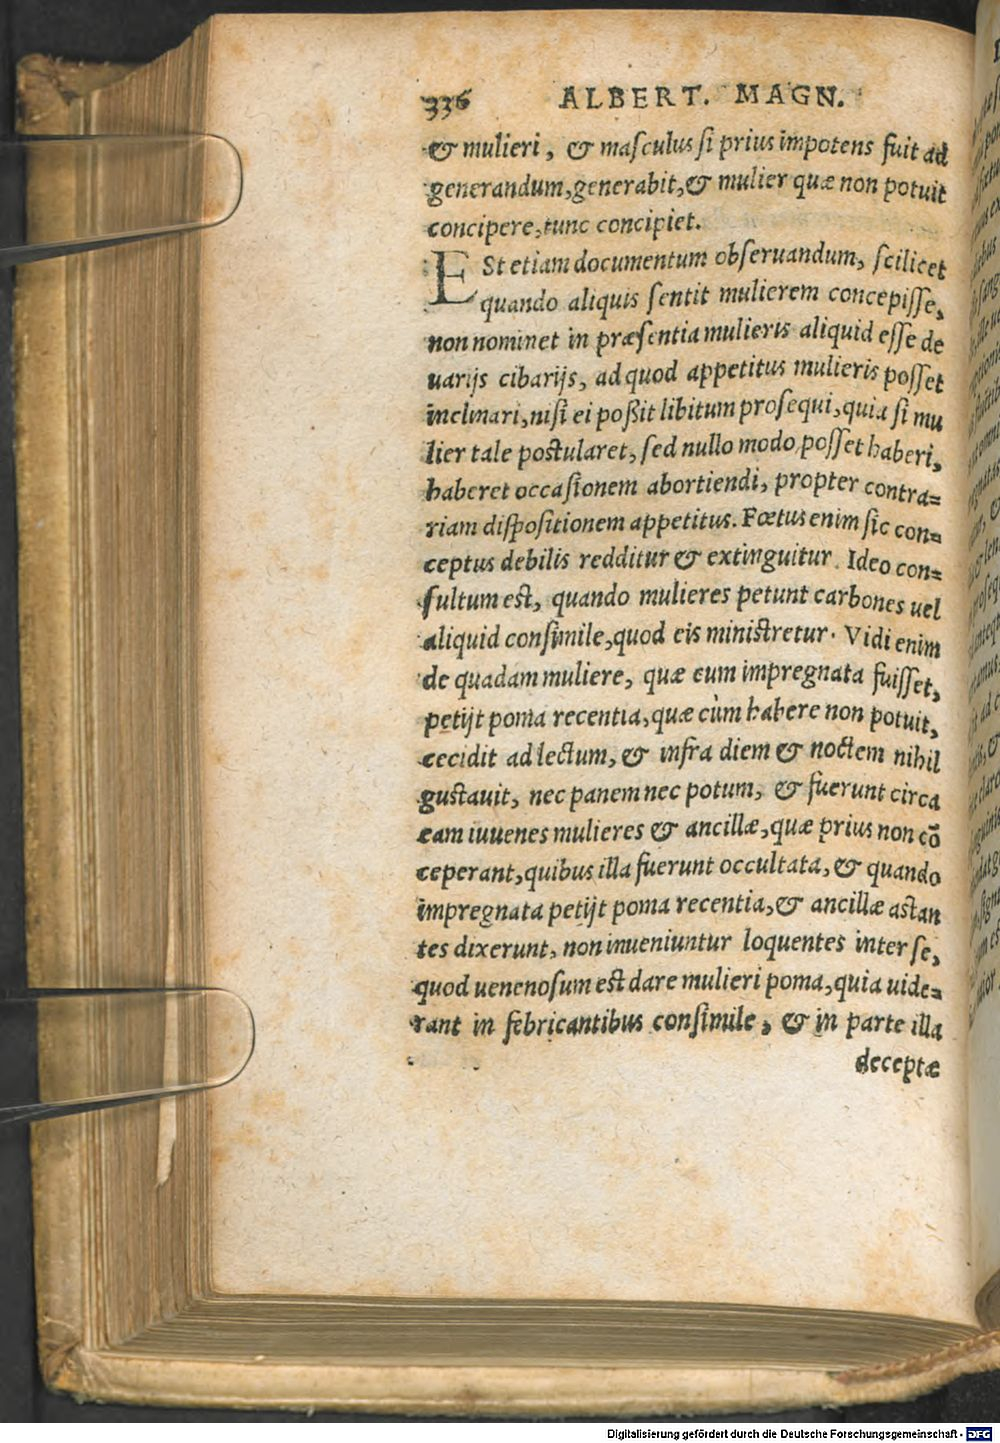 336 ALBERT. MAGN.
& mulieri, & maſculus ſi prius impotens fuit ad
generandum, generabit, & mulier quæ non potuit
concipere, tunc concipiet.
ESt etiam documentum obſeruandum, ſcilicet
quando aliquis ſentit mulierem concepiſſe,
non nominet in præſentia mulieris aliquid eſſe de
uarijs cibarijs, ad quod appetitus mulieris poſſet
inclinari, niſi ei poßit libitum proſequi, quia ſi mu
lier tale poſtularet, ſed nullo modo poſſet haberi,
haberet occaſionem abortiendi, propter contra=
riam diſpoſitionem appetitus. Fœtus enim ſic con=
ceptus debilis redditur & extinguitur. Ideo con=
ſultum eſt, quando mulieres petunt carbones uel
aliquid conſimile, quod eis miniſtretur. Vidi enim
de quadam muliere, quæ cum impregnata fuiſſet,
petijt poma recentia, quæ cùm habere non potuit,
cecidit ad lectum, & infra diem & noctem nihil
guſtauit, nec panem nec potum, & fuerunt circa
eam iuuenes mulieres & ancillæ, quæ prius non cō
ceperant, quibus illa fuerunt occultata, & quando
impregnata petijt poma recentia, & ancillæ aſtan
tes dixerunt, non inueniuntur loquentes inter ſe,
quod uenenoſum eſt dare mulieri poma, quia uide=
rant in febricantibus conſimile, & in parte illa
deceptæ
Digitalisierung gefördert durch die Deutsche Forschungsgemeinschaft - DFG